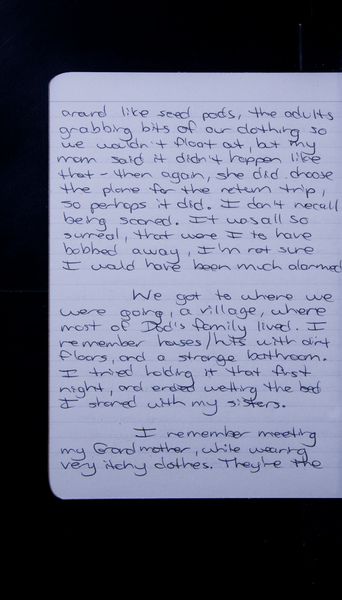 around like seed pods, the adults
grabbing bits of our clothing so
we wouldn't float out, but my
mom said it didn't happen like
that - then again, she did choose
the plane for the return trip,
so perhaps it did. I don't recall
being scared. It was all so
surreal, that were I to have
bobbed away, I'm not sure
I would have been much alarmed
We got to where we
were going, a village, where
most of Dad's family lived. I
remember houses/huts with dirt
floors, and a strange bathroom.
I tried holding it that first
night, and ended wetting the bed
I shared with my sisters.
I remember meeting
my Grandmother, while wearing
very itchy clothes. They're the